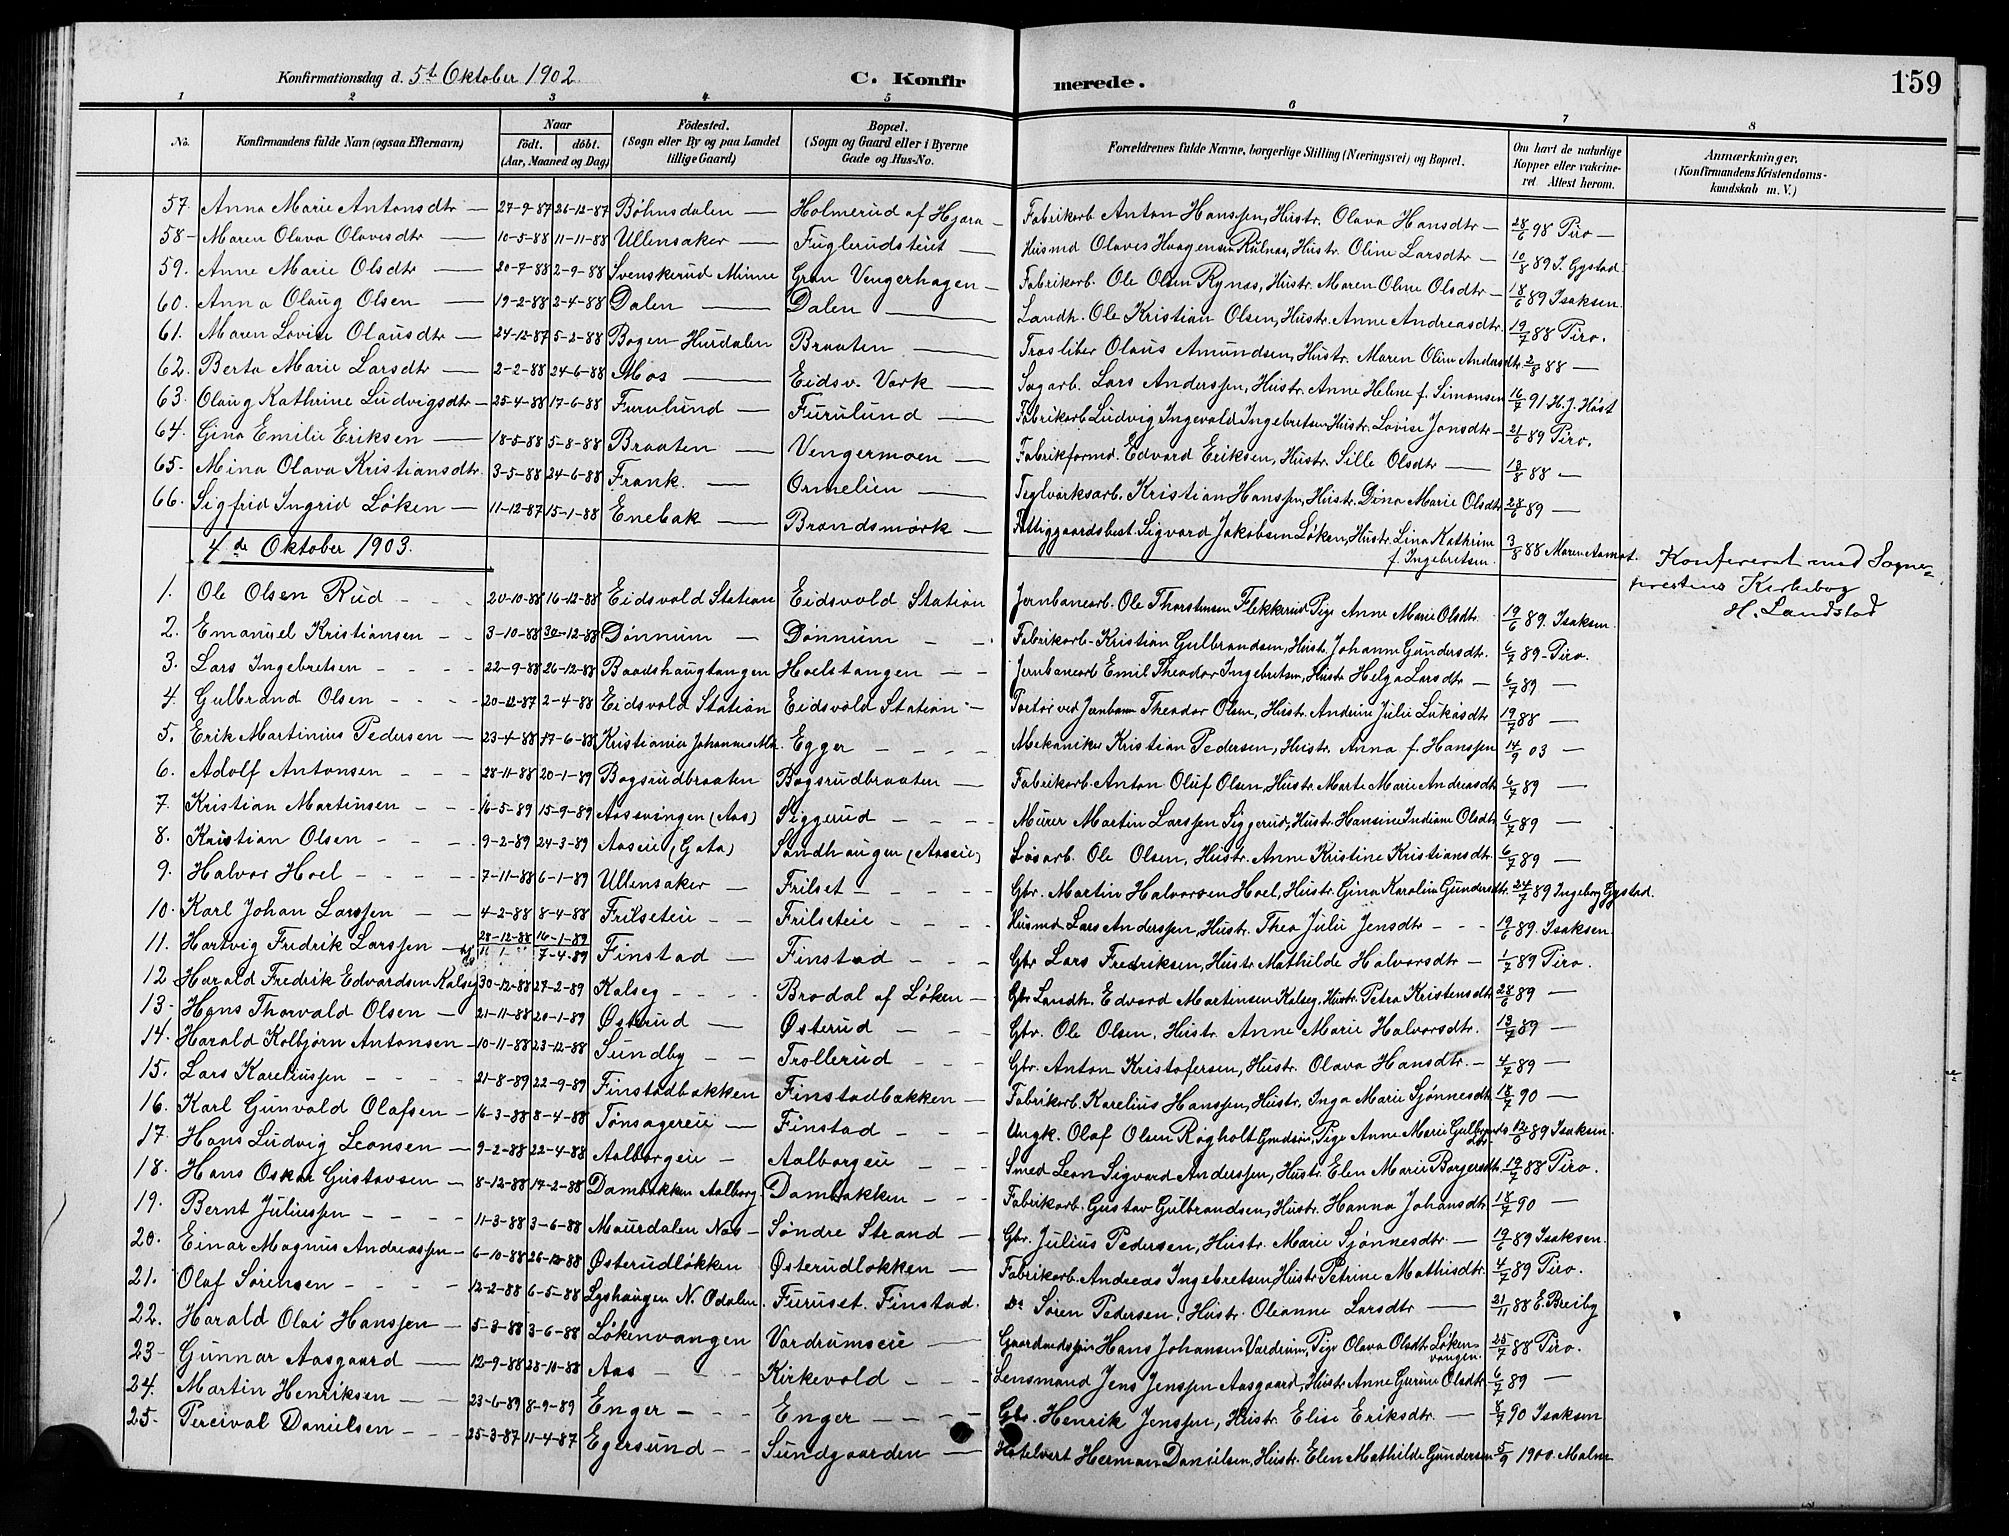 Konfirmationsdag d. 5t Oktober 1902
C. Konfirmerede.
159
1 2 3 4 5 6 7 8
No. | Konfirmandens fulde Navn (ogsaa Efternavn) | Naar født. døbt. (Aar, Maaned og Dag) | Födested. (Sogn eller By og paa Landet tillige Gaard) | Bopæl. (Sogn og Gaard eller i Byerne Gade og Hus-No. | Forældrenes fulde Navne, borgerlige Stilling (Næringsvei) og Bopæl. | Om havt de naturlige Kopper eller vakcineret. Attest herom. | Anmærkninger, (Konfirmandens Kristendomskundskab m. V.)
57. Anna Marie Antonsdtr — 27-9-87 26-12-87 Bøhnsdalen — Holmerud af Hjera — Fabrikarb. Anton Hanssen, Hustr. Olava Hansdtr — 28/6 98 Piro —
58 - Maren Olava Olavesdtr — 10-5-88 11-11-88 Ullensaker — Fuglerudsteiet — Husmd Olaves Haagensen Rulnas, Hustr. Oline Larsdtr — 10/8 89 I. Gystad
59. Anne Marie Olsdtr — 20-7-88 2-9-88 Svenskerud Minne Gran Vengerhagen — Fabrikarb. Ole Olsen Rynas, Hustr. Maren Oline Olsdtr — 18/6 89 Isaksen.
60. Anna Olaug Olsen — 19-2-88 2-4-88 Dalen — Dalen — Landh. Ole Kristian Olsen, Hustr. Anne Andreasdtr. 19/7 88 Piro.
61. Maren Lovise Olausdtr — 24-12-87 5-2-88 Bogen Hurdalen Braaten — Trasliber Olaus Amundsen, Hustr. Maren Oline Andersdtr. 2/8 88 —
62. Berta Marie Larsdtr — 2-2-88 24-6-88 Mos — Eidsv. Værk — Sagarb. Lars Anderssen, Hustr. Anne Helene f. Simonsen 16/7 91 H. J. Høst
63. Olaug Kathrine Ludvigsdtr — 25-4-88 17-6-88 Furulund — Furulund — Fabrikarb Ludvig Ingevald Ingebretsen Hustr. Lovise Jonsdtr — 21/6 89 Piro.
64. Gina Emilie Eriksen — 18-5-88 5-8-88 Braaten — Vengermoen — Fabrikformd. Edvard Eriksen, Hustr. Sille Olsdtr — 13/8 88 —
65. Mina Olava Kristiansdtr. 3-5-88 24-6-88 Frank. — Ormelien — Teglværksarb. Kristian Hanssen, Hustr. Dina Marie Olsdtr 28/6 89 —
66. Sigfrid Ingrid Løken — 11-12-87 15-1-88 Enebak — Brandsmørk — Fattiggaardsbest. Sigvard Jakobsen Løken, Hustr. Lina Kathrine f. Ingebretsen. 3/8 88 Maren Aamot.
4de Oktober 1903.
Konfereret med Sogne-
prestens Kirkebog
H. Landstad
1. Ole Olsen Rud - - - 20-10-88 16-12-88 Eidsvold Station Eidsvold Station Jernbanearb. Ole Thorstensen Flekkerud Pige Anne Marie Olsdtr. 19/6 89. Isaksen.
2. Emanuel Kristiansen - - 3-10-88 30-12-88 Dønnum — Dønnum - - Fabrikarb. Kristian Gulbrandsen, Hustr. Johanne Gundersdtr. 6/7 89 - Piro.
3. Lars Ingebretsen - - - - 22-9-88 26-12-88 Baadshaugtangen Hoelstangen - - Jernbanearb Emil Theodor Ingebretsen, Hustr Helga Larsdtr — 6/7 89 —
4. Gulbrand Olsen - - - 20-12-87 2-4-88 Eidsvold Station Eidsvold Station — Portør ved Jernbanen Theodor Olsen, Hustr. Andrine Julie Lukasdtr 19/7 88 —
5. Erik Martinius Pedersen — 23-4-88 17-6-88 Kristiania Johannes Mh. Egger - - - Mekaniker Kristian Pedersen, Hustr. Anna f. Hanssen 14/9 03 —
6. Adolf Antonsen - - - 28-11-88 20-1-89 Bogsrudbraaten Bogsrudbraaten — Fabrikarb. Anton Oluf Olsen, Hustr. Marte Marie Andreasdtr 6/7 89 —
7. Kristian Martinsen - - - 16-5-89 15-9-89 Aassvingen (Aas) Siggerud - - - - Murer Martin Larssen Siggerud, Hustr. Hansine Indiane Olsdtr 6/7 89 —
8. Kristian Olsen - - - - 9-2-89 24-3-89 Aaseie (Gata) Sandhaugen (Aaseie) Løsarb. Ole Olsen, Hustr. Anne Kristine Kristiansdtr. 6/7 89 —
9. Halvor Hoel - - - - - 7-11-88 6-1-89 Ullensaker — Frilset - - - - Gbr. Martin Halvorsen Hoel, Hustr. Gina Karoline Gundersdtr. 24/7 89 Ingeborg Gystad.
10. Karl Johan Larssen - - 4-2-88 8-4-88 Frilseteie - - Frilseteie - - - Husmd Lars Anderssen, Hustr. Thea Julie Jensdtr - - - 19/6 89. Isaksen.
11. Hartvig Fredrik Larssen — 28-12-88 16-1-89 7-4-89 Finstad - - Finstad - - - Gbr Lars Fredriksen, Hustr. Mathilde Halvorsdtr — 1/7 89 Piro.
12 Harald Fredrik Edvardsen Kalseg 30-12-88 27-2-89 Kalseg - - - - Brodal af Løken — Gbr Landh. Edvard Martinsen Kalseg, Hustr. Petra Kristensdtr 28/6 89 —
13 - Hans Thorvald Olsen — 21-11-88 20-1-89 Østerud — Østerud - - - Gbr. Ole Olsen, Hustr. Anne Marie Halvorsdtr. 13/7 89 —
14. Harald Kolbjørn Antonsen — 10-11-88 23-12-88 Sundby - - Trollerud - - - Gbr. Anton Kristofersen, Hustr. Olava Hansdtr. — 4/7 89 —
15. Lars Kareliussen - - - - 21-8-89 22-9-89 Finstadbakken Finstadbakken — Fabrikarb. Karelius Hanssen, Hustr. Inga Marie Sjønnesdtr 18/7 90 —
16. Karl Gunvald Olafsen — 16-3-88 8-4-88 Tønsagereie — Finstad - - - Ungk. Olaf Olsen Røgholt Grndsön, Pige Anne Marie Gulbrandsdtr. 12/6 89 Isaksen.
17. Hans Ludvig Leonsen — 9-2-88 22-4-88 Aalborgeie — Aalborgeie - - - Smed Leon Sigvard Anderssen, Hustr. Elen Marie Borgersdtr. 19/7 88 Piro.
18. Hans Oskar Gustavsen — 8-12-88 17-2-88 Dambakken Aalborg. Dambakken - - - Fabrikarb. Gustav Gulbrandsen, Hustr. Hanna Johansdtr 18/7 90 —
19. Bernt Juliussen - - - - 11-3-88 3-6-88 Maurdalen Næs — Søndre Strand — Gbr. Julius Pedersen, Hustr. Marie Sjønnesdtr. — 19/6 89 Isaksen.
20. Einar Magnus Andreassen — 6-10-88 26-12-88 Østerudløkken Østerudløkken — Fabrikarb. Andreas Ingebretsen, Hustr Petrine Mathisdtr. 4/7 89 Piro.
21. Olaf Sørensen - - - - 12-2-88 6-5-88 Lyshaugen N. Odalen. Furusst. Finstad. Do Søren Pedersen, Hustr. Oleanne Larsdtr — 21/11 88 E. Breiby
22. Harald Olai Hanssen — 5-3-88 3-6-88 Løkenvangen Vardrumseie — Gaardmdssøn Hans Johansen Vardrum, Pige Olava Olsdtr. Løkenvangen 25/7 88 Piro.
23 - Gunnar Aasgaard — 12-9-88 28-10-88 Aas - - - Kirkevold - - - Lensmand Jens Jenssen Aasgaard, Hustr Anne Gurine Olsdtr 6/7 89 —
24. Martin Henriksen — 23-6-89 8-9-89 Enger - - - Enger - - - - Gbr. Henrik Jenssen, Hustr. Elise Eriksdtr. — 8/7 90 Isaksen
25. Percival Danielsen - - - 25-3-87 11-4-87 Egersund - - Sundgaarden — Hotelvert Herman Danielsen, Hustr. Elen Mathilde Gundersen 5/9 1900. Malm